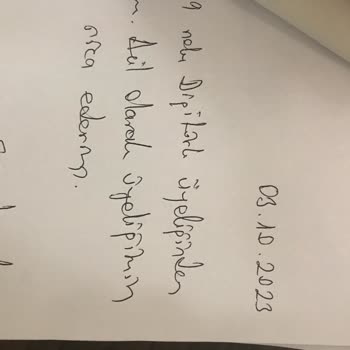 03.10.2023
9 nolu Digiturk üyeliğinden
m. Acil olarak üyeliğimin
rica ederim.